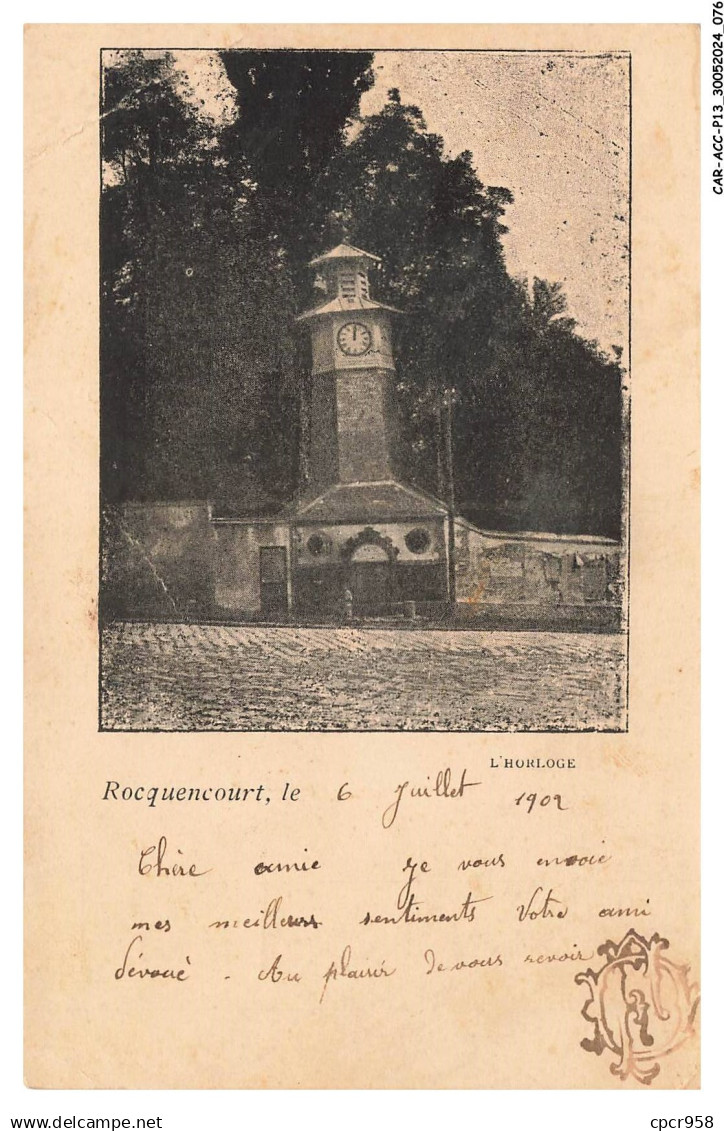 CAR-ACC-P13_30052024_076
L'HORLOGE
Rocquencourt, le 6 Juillet 1902
Chère amie je vous envoie
mes meilleurs sentiments Votre ami
dévoué - Au plaisir de vous revoir
cpcr958
Delcampe.net